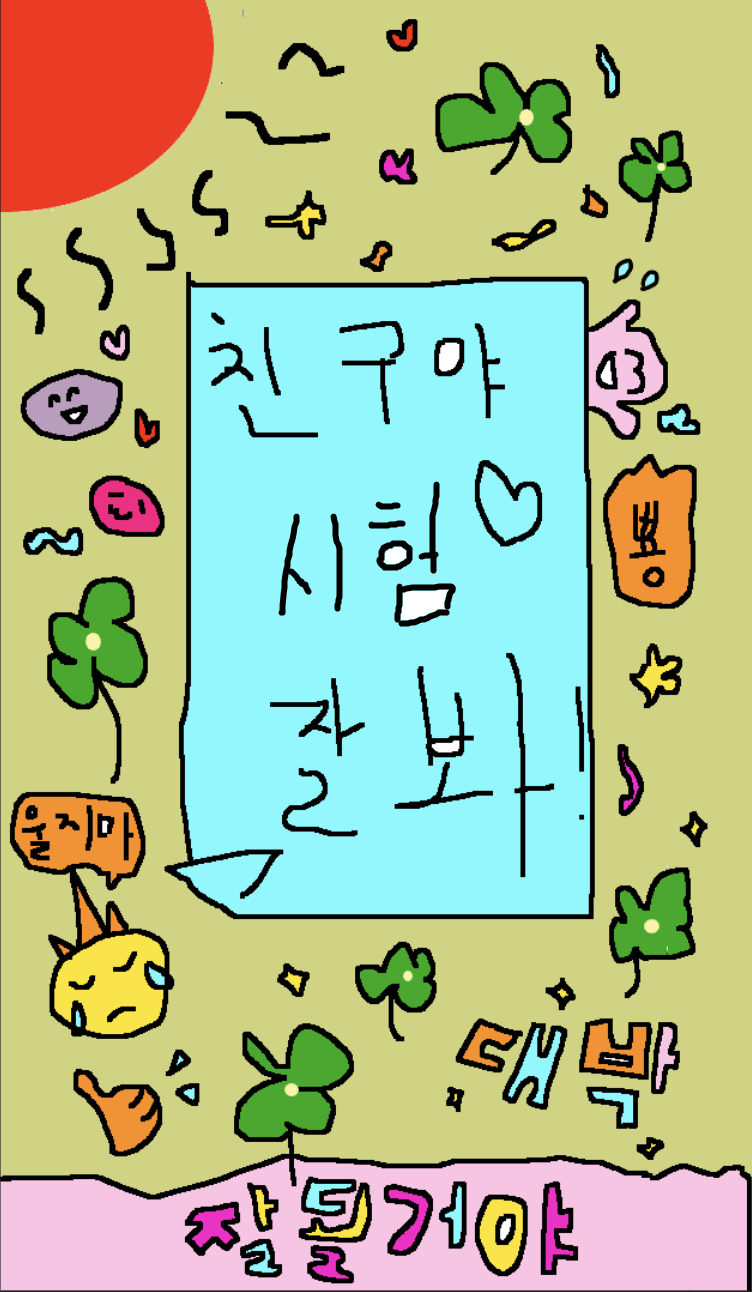 친구야
시험
잘 봐!
뽕
울지마
대박
잘될거야